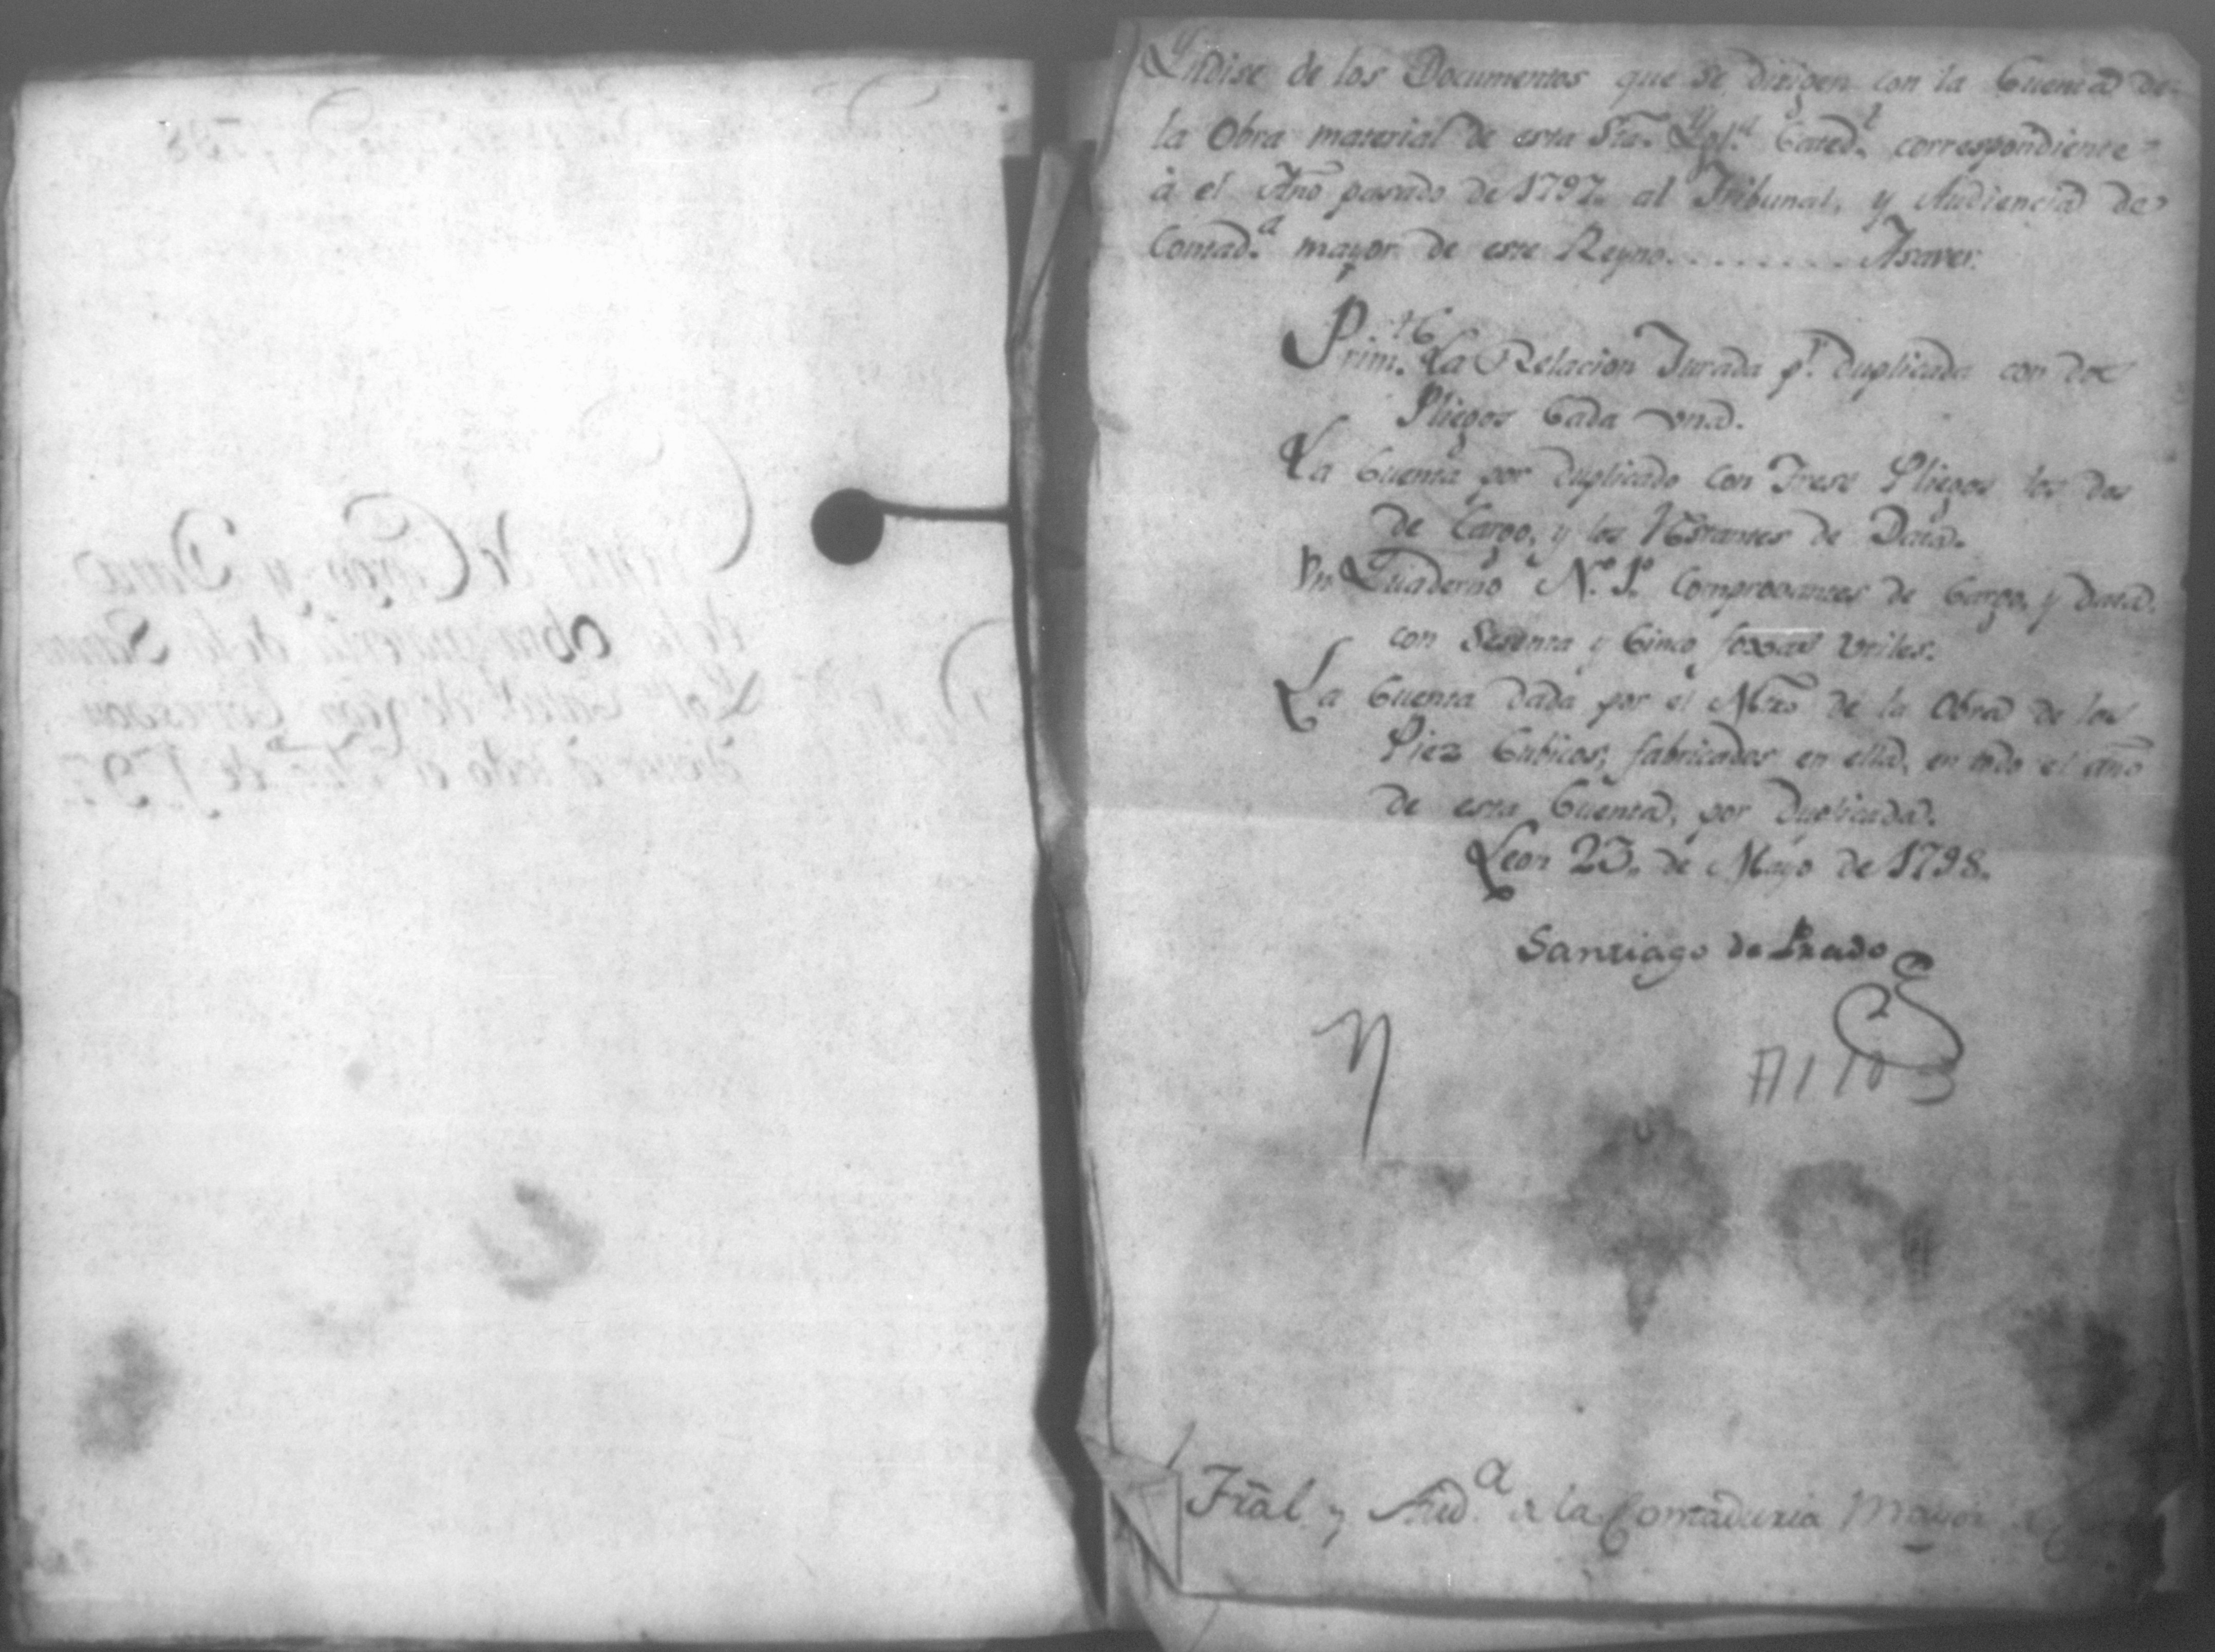 Yndise de los Documentos que se dirigen con la Cuenta de
la Obra material de esta Sta. Ygl.ª Cated.l correspondiente
à el Año pasado de 1797. al Tribunal, y Audiencia de
Contad.ª mayor de este Reyno........Asaver.
Prim.te La Relacion Jurada pr. duplicada con dos
Pliegos Cada una.
La Cuenta por duplicado con Trese Pliegos los dos
de Cargo, y los Restantes de Data.
Un Cuaderno N.º 1.º Comprovantes de Cargo, y Data.
con Sesenta y Cinco foxas utiles.
La Cuenta dada por el Mtro de la Obra de los
Piez Cubicos, fabricados en ella, en todo el año
de esta Cuenta, por Duplicada.
Leon 23. de Mayo de 1798.
Santiago de Prado
Tral. y Aud.ª de la Contaduria Mayor
Cuenta de Cargo y Data
de la Obra material de la Santa
Ygl.ª Cated.l de Leon Correspon
diente à todo el Año de 1797